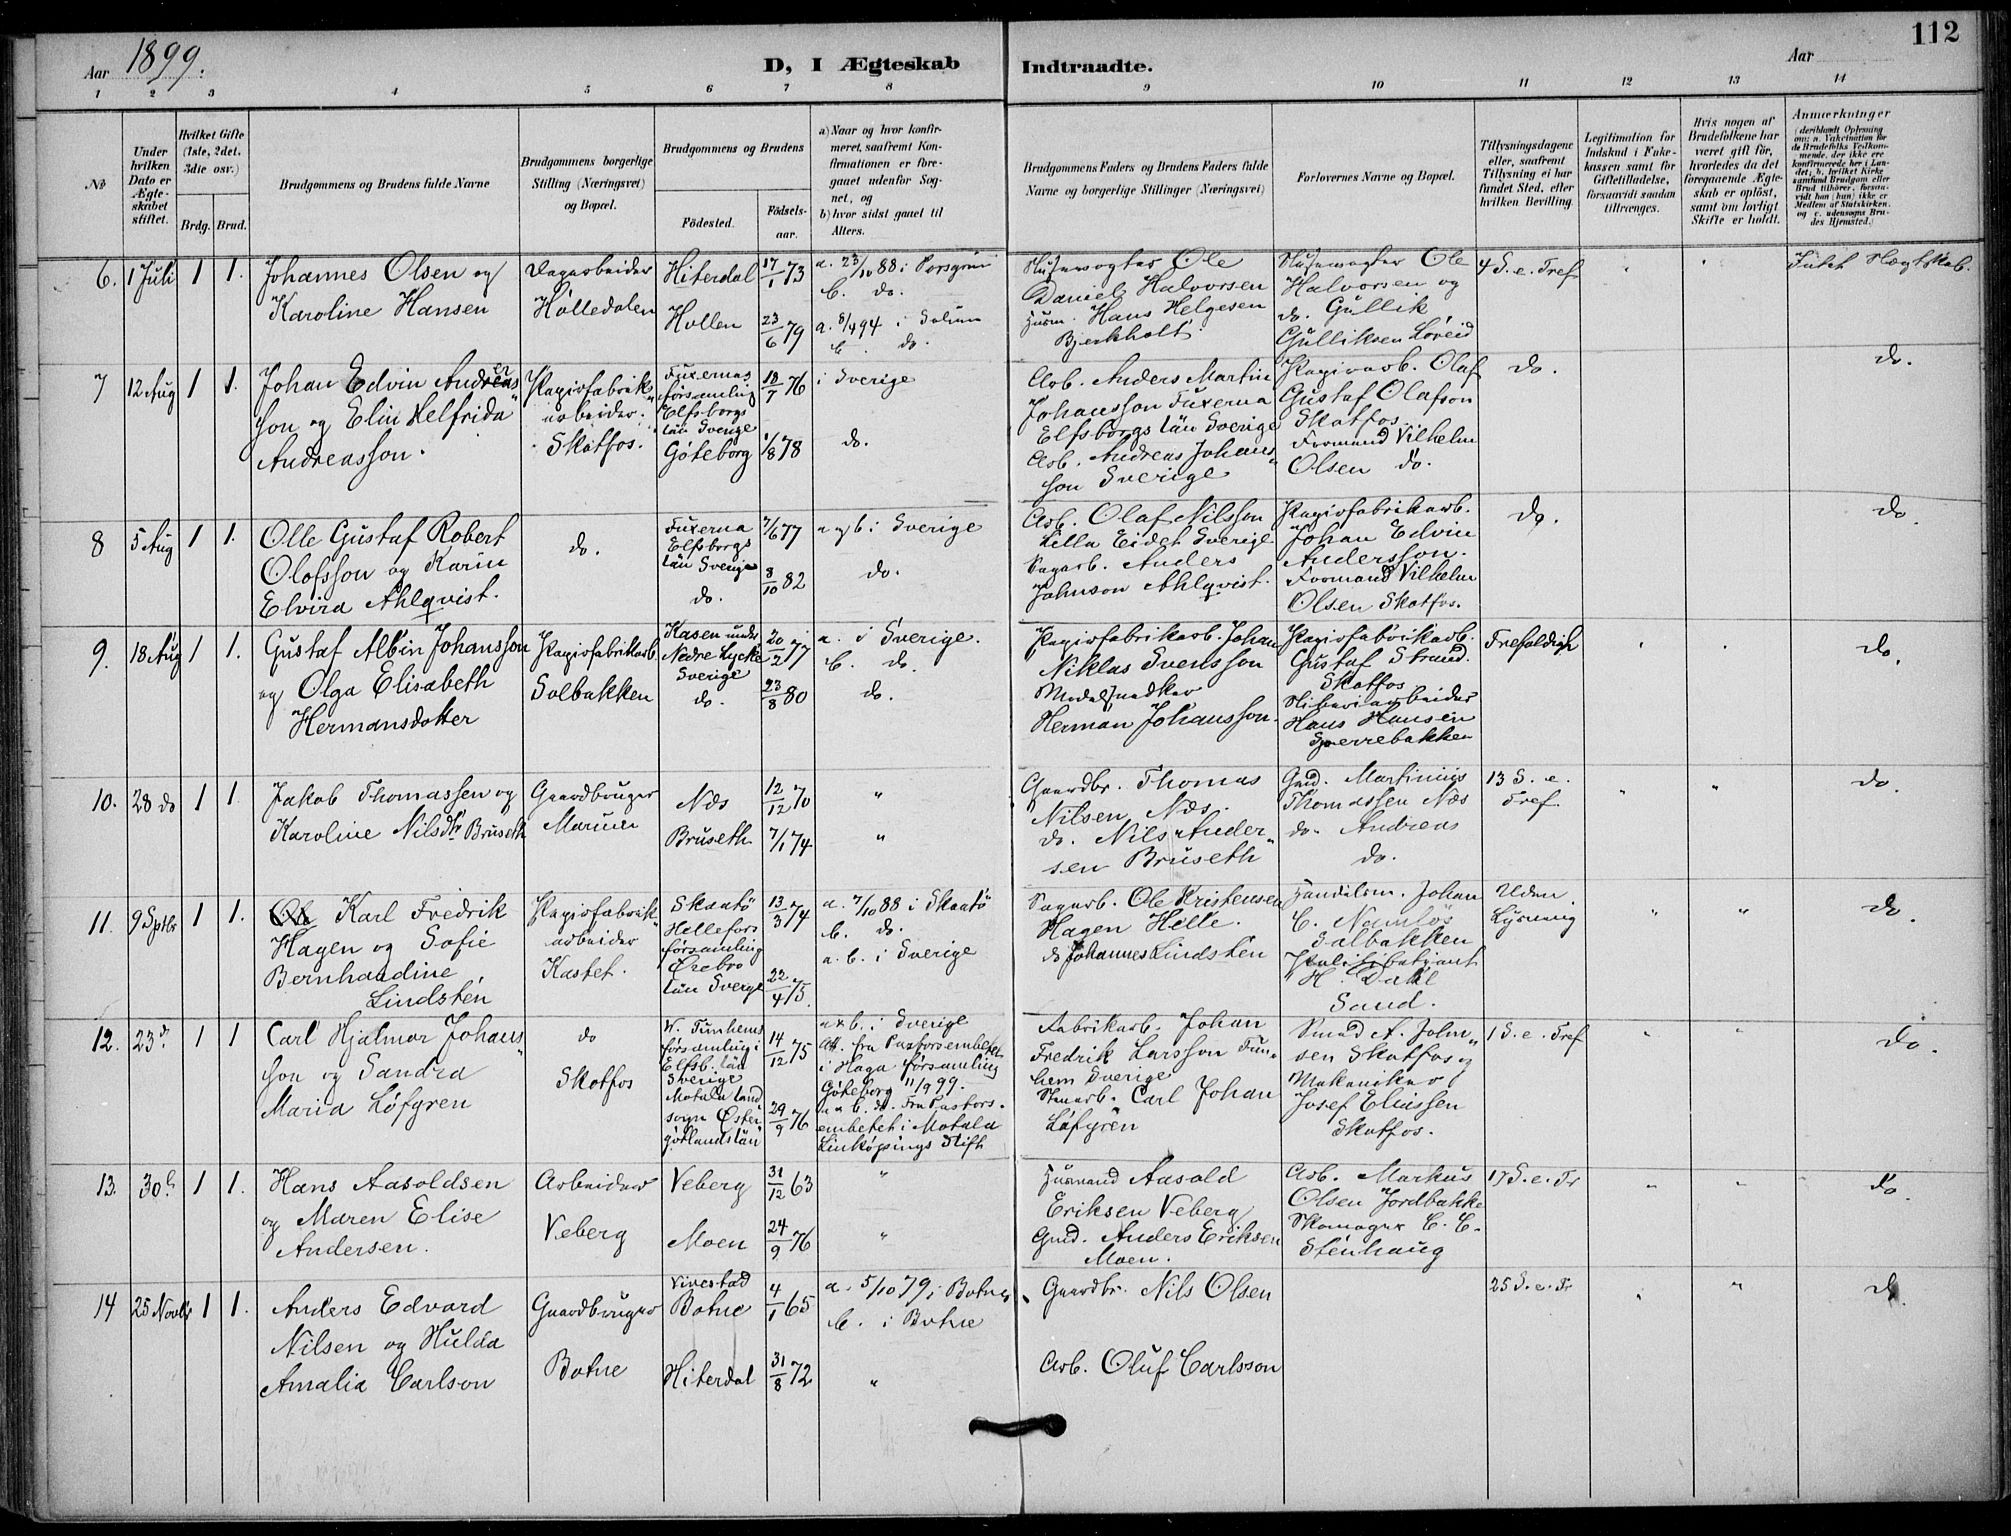 112
Aar 1899.
D, I Ægteskab Indtraadte.
Aar
1 2 3 4 5 6 7 8 9 10 11 12 13 14
No
Under hvilken Dato er Ægteskabet stiftet.
Hvilket Gifte (1ste, 2det, 3die osv.)
Brdg. Brud.
Brudgommens og Brudens fulde Navne
Brudgommens borgerlige Stilling (Næringsvei) og Bopæl.
Brudgommens og Brudens
Fødested.
Fødsels-aar.
a) Naar og hvor konfirmeret, saafremt Konfirmationen er foregaaet udenfor Sognet, og
b) hvor sidst gaaet til Alters.
Brudgommens Faders og Brudens Faders fulde Navne og borgerlige Stillinger (Næringsvei)
Forlovernes Navne og Bopæl.
Tillysningsdagene eller, saafremt Tillysning ei har fundet Sted, efter hvilken Bevilling.
Legitimation for Indskud i Enkekassen samt for Giftetilladelse, forsaavidt saadan tiltrænges.
Hvis nogen af Brudefolkene har været gift før, hvorledes da det foregaaende Ægteskab er opløst, samt om lovligt Skifte er holdt.
Anmærkninger
6. 1 Juli 1 1.
Johannes Olsen og
Karoline Hansen
Dagarbeider
Holledalen
Hiterdal 17/1 73
Hollen 23/6 79
a. 23/10 88 i Porsgrun
b. do.
a. 8/4 94 i Solum
b. do.
Slusevogter Ole
Daniel Halvorsen
Husm. Hans Helgesen
Bjerkholt
Slusevogter Ole
Halvorsen og
do. Gullik
Gulliksen Løveid
4 S. e. Tref
Intet Slægtskab.
7 12 Aug 1 1.
Johan Edvin Anders
son og Elin Helfrida
Andreasson.
Papirfabrik
arbeider.
Skotfos.
Fuxernas
församling
Elfsborgs
län Sverige 18/7 76
Göteborg 1/8 78
i Sverige
do.
Arb. Anders Martin
Johansson Fuxerna
Elfsborgs län Sverige
Arb. Andreas Johans
son Sverige
Papirarb. Olaf
Gustaf Olafson
Skotfos
Formand Vilhelm
Olsen do.
do.
do.
8 5 Aug 1 1.
Olle Gustaf Robert
Olofsson og Karin
Elvira Ahlqvist.
do.
Fuxerna
Elfsborgs
län Sverige 7/6 77
do. 8/10 82
a og b. i Sverige
do.
Arb. Olaf Nilsson
Lilla Eidet Sverige
Sagarb. Anders
Johnson Ahlqvist.
Papirfabrikarb.
Johan Edvin
Andersson.
Formand Vilhelm
Olsen Skotfos.
do.
do.
9. 18 Aug 1 1.
Gustaf Albin Johansson
og Olga Elisabeth
Hermansdotter
Papirfabrikarb.
Solbakken
Kasen under
Nedre Lycke
Sverige 20/2 77
do. 23/8 80
a. i Sverige.
b. do.
do.
Papirfabrikarb. Johan
Niklas Svensson
Modelsnedker
Herman Johansson.
Papirfabrikarb.
Gustaf Strand.
Skotfos
Sliberiarbeider
Hans Hansen
Sperrebakken
Trefoldigh
do.
10. 28 do 1 1
Jakob Thomassen og
Karoline Nilsdtr Bruseth
Gaardbruger
Næs 12/12 70
Bruseth 7/1 74
Gaardbr. Thomas
Nilsen Næs.
do. Nils Ander
sen Bruseth
Gmd. Martinius
Thomassen Næs
do. Andreas
do.
13 S. e.
Tref.
do.
11. 9 Septbr 1 1.
Karl Fredrik
Hagen og Sofie
Bernhardine
Lindstén
Papirfabrik
arbeider
Kastet.
Skaatö 13/3 74
Hellefors
församling
Örebro
län Sverge 22/4 75.
a. 7/10 88 i Skaatö
b. do.
a. b. i Sverige
Sagarb. Ole Kristensen
Hagen Helle.
do Johannes Lindstén
Handelsm. Johan
C. Namløs
Solbakken
Politibetjent
H. Dahl
Sand.
Uden
Lysning
do.
12. 23 do 1 1
Carl Hjalmar Johans
son og Sandra
Maria Löfgren
do
Skotfos
W. Tunhems
församling i
Elfsb. län
Sverige 14/12 75
Motala land
sogn Öster
götlandslän 29/9 76
a x b. i Sverige
Att. fra Pastorsembetet
i Haga församling
Göteborg 11/9 99.
a x b. do. Fra Pastors
embetet i Motala
Linköpings Stift
Fabrikarb. Johan
Fredrik Larsson Tun
hem Sverige
Carl Johan
Löfgren
Smed A. John
sen Skotfos og
Mekaniker
Josef Eliassen
Skotfos.
1 S. e. Tref
do.
13. 30 1 1.
Hans Aasoldsen
og Maren Elise
Andersen.
Arbeider
Veberg
Veberg 31/12 63
Moen 24/9 76
Husmand Aasold
Eriksen Veberg
Gmd. Anders Eriksen
Moen.
Arb. Markus
Olsen Jordbakke
Skomager C. C.
Stenhaug
17 S. e. Tr
do.
14 25 Novbr 1 1.
Anders Edvard
Nilsen og Hulda
Amalia Carlson
Gaardbruger
Botne
Vivestad
Botne 4/1 65
Hiterdal 31/8 72
a. 5/10 79 i Botne
b. i Botne
Gaardbr. Nils Olsen
Arb. Oluf Carlsson
25 S. e. Tr
do.